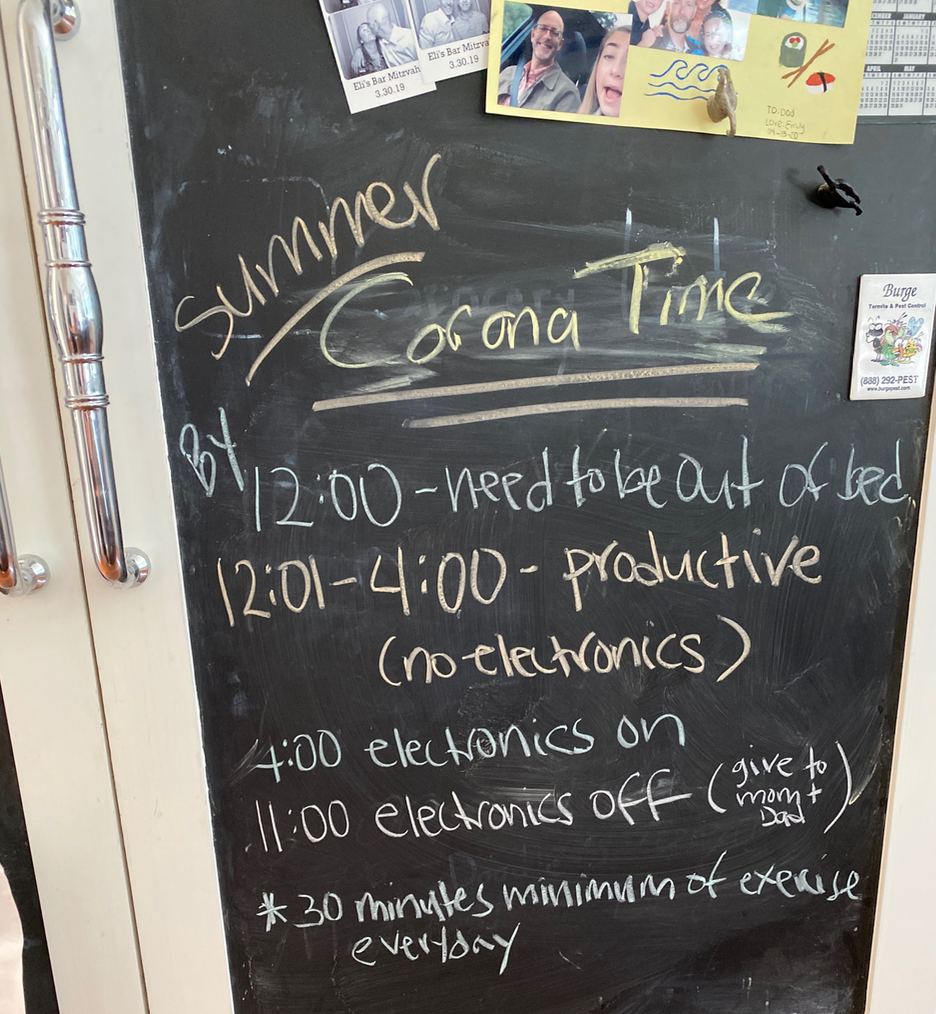 Eli's Bar Mitzvah
3.30.19
Eli's Bar Mitzvah
3.30.19
TO: Dad
Love: Emily
JANUARY
APRIL
MAY
summer
Corona Time
Burge
Termite & Pest Control
(888) 292-PEST
www.burgepest.com
By 12:00 - need to be out of bed
12:01 - 4:00 - productive
(no electronics)
4:00 electronics on
11:00 electronics off (give to
mom +
Dad)
* 30 minutes minimum of exercise
everyday